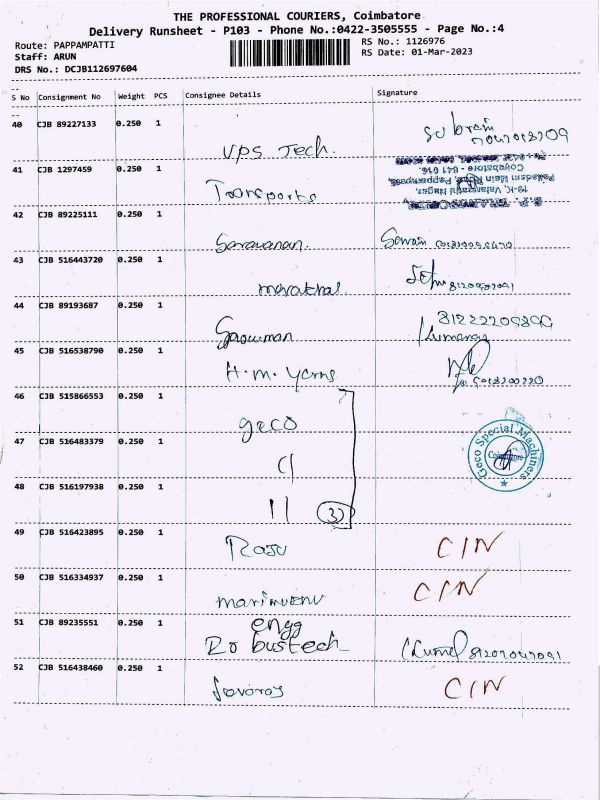 THE PROFESSIONAL COURIERS, Coimbatore
Delivery Runsheet - P103 - Phone No.:0422-3505555 - Page No.:4
Route: PAPPAMPATTI
Staff: ARUN
DRS No.: DCJB112697604
RS No.: 1126976
RS Date: 01-Mar-2023
S No Consignment No Weight PCS Consignee Details Signature
40 CJB 89227133 0.250 1 VPS Tech
41 CJB 1297459 0.250 1 Transports
19-K, Valangagadu Nagar,
Coimbatore - 641 016.
42 CJB 89225111 0.250 1 Saravanan
43 CJB 516443720 0.250 1
44 CJB 89193687 0.250 1
45 CJB 516538790 0.250 1 H.M. Yarns
46 CJB 515866553 0.250 1 geco
47 CJB 516483379 0.250 1 
48 CJB 516197938 0.250 1 || 3
Geco Special Machiners
Coimbatore
49 CJB 516423895 0.250 1 Raju C/N
50 CJB 516334937 0.250 1 C/N
51 CJB 89235551 0.250 1 Robustech engg
52 CJB 516438460 0.250 1 C/N